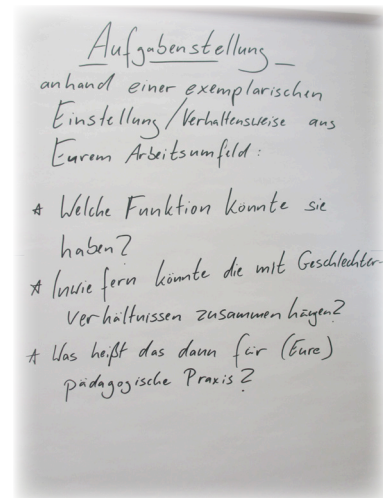 Aufgabenstellung
anhand einer exemplarischen
Einstellung/Verhaltensweise aus
Eurem Arbeitsumfeld:
* Welche Funktion könnte sie
haben?
* Inwie fern könnte die mit Geschlechter-
verhältnissen zusammen hängen?
* Was heißt das dann für (Eure)
pädagogische Praxis?